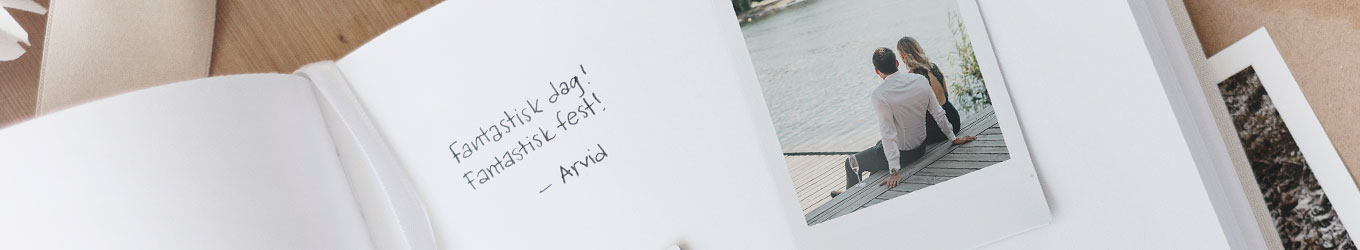 Fantastisk dag!
Fantastisk fest!
– Arvid